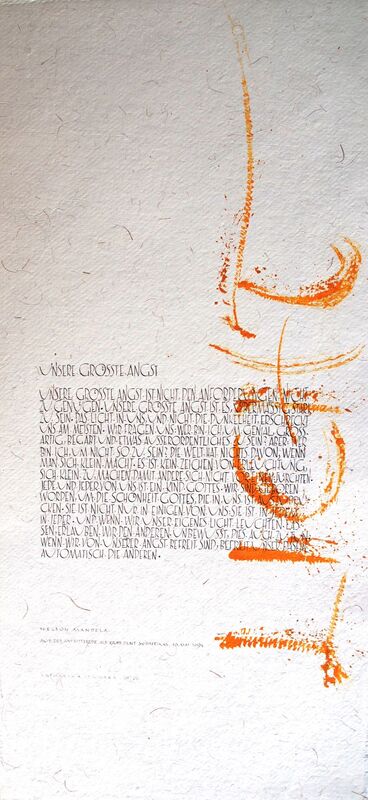 UNSERE GRÖSSTE ANGST
UNSERE GRÖSSTE ANGST IST NICHT, DEN ANFORDERUNGEN NICHT
ZU GENÜGEN · UNSERE GRÖSSTE ANGST IST ES, ÜBERMÄSSIG STARK
ZU SEIN · DAS LICHT IN UNS UND NICHT DIE DUNKELHEIT ERSCHRECKT
UNS AM MEISTEN · WIR FRAGEN UNS: WER BIN ICH, UM GENIAL, GROSS
ARTIG, BEGABT UND ETWAS AUSSERORDENTLICHES ZU SEIN? ABER WER
BIN ICH, UM NICHT SO ZU SEIN? DIE WELT HAT NICHTS DAVON, WENN
MAN SICH KLEIN MACHT · ES IST KEIN ZEICHEN VON ERLEUCHTUNG,
SICH KLEIN ZU MACHEN, DAMIT ANDERE SICH NICHT VOR EINEM FÜRCHTEN ·
JEDE UND JEDER VON UNS IST EIN KIND GOTTES · WIR SIND GEBOREN
WORDEN, UM DIE SCHÖNHEIT GOTTES, DIE IN UNS IST, AUSZUDRÜ
CKEN · SIE IST NICHT NUR IN EINIGEN VON UNS · SIE IST IN JEDEM,
IN JEDER · UND WENN WIR UNSER EIGENES LICHT LEUCHTEN LAS
SEN, ERLAUBEN WIR DEN ANDEREN UNBEWUSST, DIES AUCH ZU TUN ·
WENN WIR VON UNSERER ANGST BEFREIT SIND, BEFREIT UNSER DASEIN
AUTOMATISCH DIE ANDEREN ·
NELSON MANDELA
AUS DER ANTRITTSREDE ALS PRÄSIDENT SÜDAFRIKAS, 10. MAI 1994